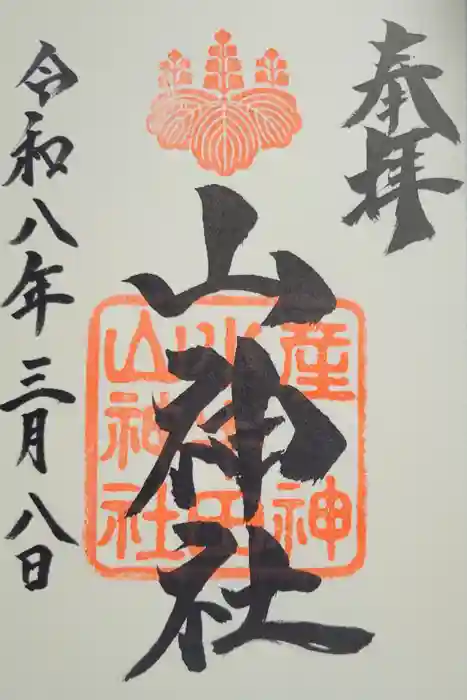 奉拝
山神社
産神
山神社
令和八年三月八日